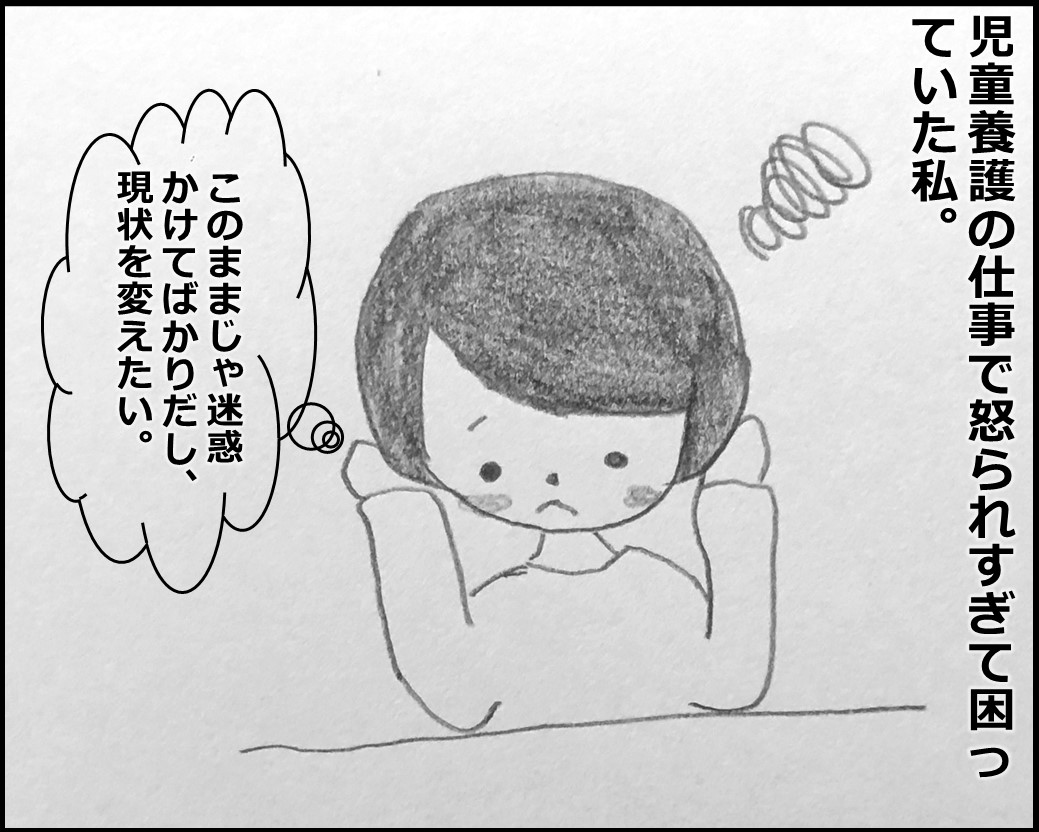 児童養護の仕事で怒られすぎて困っ
ていた私。
このままじゃ迷惑
かけてばかりだし、
現状を変えたい。